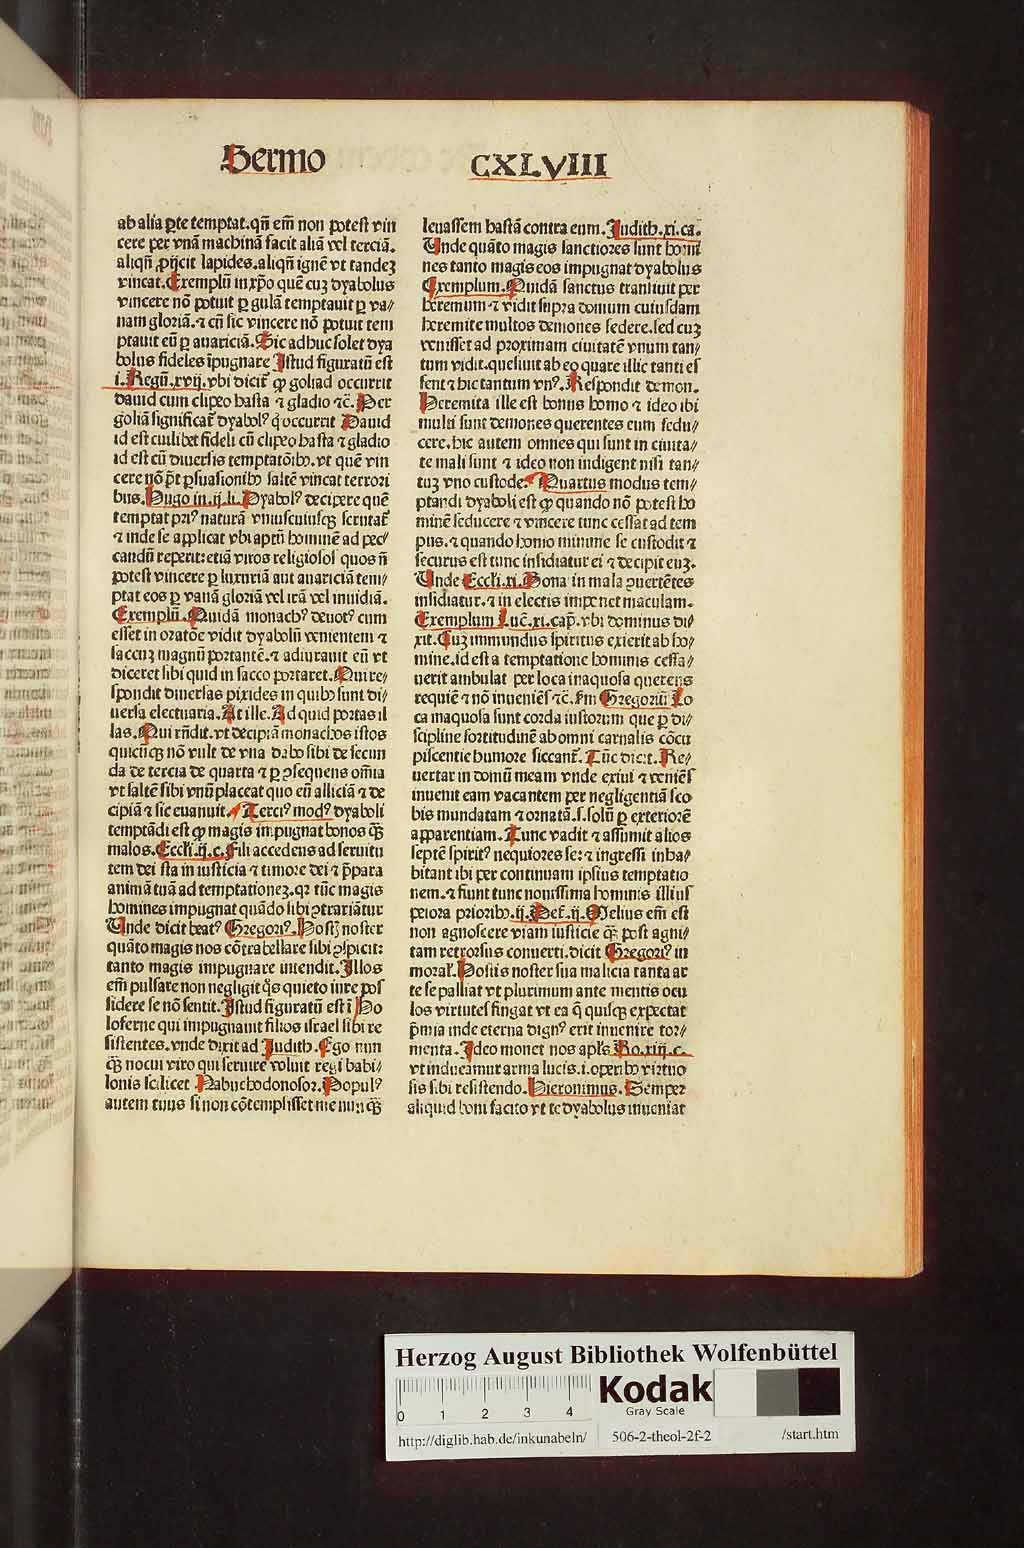 Sermo CXLVIII
ab alia ꝑte temptat. qñ em̄ non potest vin
cere per vnā machinā facit aliā vel terciā.
aliqñ ꝓijcit lapides. aliqñ ignē vt tandeꝫ
vincat. Exemplū in xp̄o quē cuꝫ dyabolus
vincere nō potuit ꝑ gulā temptauit ꝑ va/
nam gloriā. ⁊ cū sic vincere nō potuit tem
ptauit eū ꝑ auariciā. Sic adhuc solet dya
bolus fideles īpugnare Istud figuratū est
i. Regū. xvij. vbi dicit̄ ꝙ goliad occurrit
dauid cum clipeo hasta ⁊ gladio ⁊c̄. Per
goliā significat̄ dyabolꝰ q̇ occurrit Dauid
id est cuilibet fideli cū clipeo hasta ⁊ gladio
id est cū diuersis temptatōibꝰ. vt quē vin
cere nō p̄t ꝑsuasionibꝰ saltē vincat terrori
bus. Hugo in. ij. li. Dyabolꝰ decipere quē
temptat priꝰ naturā vniuscuiusqꝫ scrutat̄
⁊ inde se applicat vbi aptū hominē ad pec/
candū reperit: etiā viros religiosos quos ñ
potest vincere ꝑ luxuriā aut auariciā tem/
ptat eos ꝑ vanā gloriā vel irā vel inuidiā.
Exemplū. Quidā monachꝰ deuotꝰ cum
esset in oratōe vidit dyabolū venientem ⁊
saccuꝫ magnū portantē. ⁊ adiurauit eū vt
diceret sibi quid in sacco portaret. Qui re/
spondit diuersas pixides in quibꝰ sunt di/
uersa electuaria. At ille. Ad quid portas il
las. Qui rñdit. vt decipiā monachos istos
quicūqꝫ nō vult de vna dabo sibi de secun
da de tercia de quarta ⁊ ꝑ ꝯsequens om̄ia
vt saltē sibi vnū placeat quo eū alliciā ⁊ de
cipiā ⁊ sic euanuit. Terciꝰ modꝰ dyaboli
temptādi est ꝙ magis impugnat bonos q̄ꝫ
malos. Eccli. ij. c. Fili accedens ad seruitu
tem dei sta in iusticia ⁊ timore dei ⁊ p̄para
animā tuā ad temptationeꝫ. qꝛ tūc magis
homines impugnat quādo sibi ꝯtrariātur
Unde dicit beatꝰ Gregoriꝰ. Hostꝫ noster
quāto magis nos cōtra bellare sibi ꝯspicit:
tanto magis impugnare intendit. Illos
em̄ pulsare non negligit q̇s quieto iure pos
sidere se nō sentit. Istud figuratū est i Ho
loferne qui impugnauit filios israel sibi re
sistentes. vnde dixit ad Iudith. Ego nun
q̄ꝫ nocui viro qui seruire voluit regi babi/
lonis scilicet Nabuchodonosor. Populꝰ
autem tuus si non cōtempsisset me nunq̄ꝫ
leuassem hastā contra eum. Iudith. xi. ca.
Unde quāto magis sanctiores sunt homi
nes tanto magis eos impugnat dyabolus
Exemplum. Quidā sanctus transiuit per
heremum ⁊ vidit supra domum cuiusdam
heremite multos demones sedere. sed cuꝫ
venisset ad proximam ciuitatē vnum tan/
tum vidit. quesiuit ab eo quare illic tanti es
sent ⁊ hic tantum vnꝰ. Respondit demon.
Heremita ille est bonus homo ⁊ ideo ibi
multi sunt demones querentes eum sedu/
cere. hic autem omnes qui sunt in ciuita/
te mali sunt ⁊ ideo non indigent nisi tan/
tuꝫ vno custode. Quartus modus tem/
ptandi dyaboli est ꝙ quando nō potest ho
minē seducere ⁊ vincere tunc cessat ad tem
pus. ⁊ quando homo minime se custodit ⁊
securus est tunc insidiatur ei ⁊ decipit euꝫ.
Unde Eccli. xi. Bona in mala ꝯuertētes
insidiatur. ⁊ in electis imponet maculam.
Exemplum Luc̄. xi. cap̄. vbi dominus di/
xit. Cuꝫ immundus spiritus exierit ab ho/
mine. id est a temptatione hominis cessa/
uerit ambulat per loca inaquosa querens
requiē ⁊ nō inueniēs ⁊c̄. Fm Gregoriū Lo
ca inaquosa sunt corda iustorum que ꝑ di/
scipline fortitudinē ab omni carnalis cōcu
piscentie humore siccant̄. Tūc dicit. Re/
uertar in domū meam vnde exiui ⁊ veniēs
inuenit eam vacantem per negligentiā sco
bis mundatam ⁊ ornatā. s. solū ꝑ exteriorē
apparentiam. Tunc vadit ⁊ assumit alios
septē spiritꝰ nequiores se: ⁊ ingressi inha/
bitant ibi per continuam ipsius temptatio
nem. ⁊ fiunt tunc nouissima hominis illius
peiora prioribꝰ. ij. Pet̄. ij. Melius em̄ est
non agnoscere viam iusticie q̄ꝫ post agni/
tam retrorsus conuerti. dicit Gregoriꝰ in
moral̄. Hostis noster sua malicia tanta ar
te se palliat vt plurimum ante mentis ocu
los virtutes fingat vt ea q̄ quisqꝫ expectat
p̄mia inde eterna dignꝰ erit inuenire tor/
menta. Ideo monet nos apl̄s Ro. xiij. c.
vt induamur arma lucis. i. operibꝰ virtuo
sis sibi resistendo. Hieronimus. Semper
aliquid boni facito vt te dyabolus inueniat
Herzog August Bibliothek Wolfenbüttel
0 1 2 3 4
Kodak
Gray Scale
http://diglib.hab.de/inkunabeln/ 506-2-theol-2f-2 /start.htm